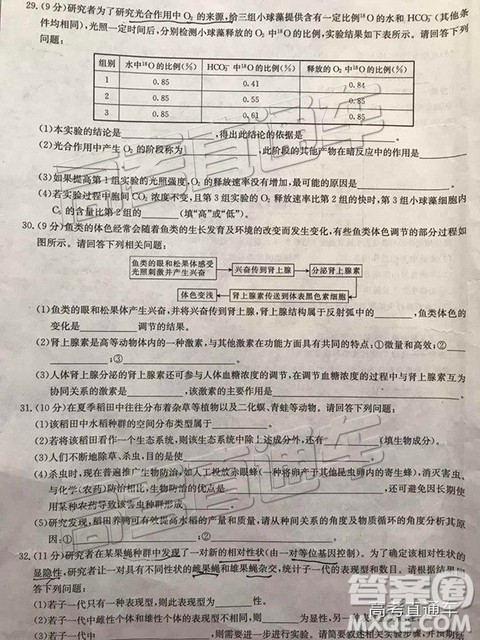 29.(9分)研究者为了研究光合作用中O₂的来源,给三组小球藻提供含有一定比例¹⁸O的水和HCO₃⁻(其他条
件均相同),光照一定时间后,分别检测小球藻释放的O₂中¹⁸O的比例,实验结果如下表所示。请回答以下
问题:
组别 水中¹⁸O的比例(%) HCO₃⁻中¹⁸O的比例(%) 释放的O₂中¹⁸O的比例(%)
1 0.85 0.41 0.84
2 0.85 0.55 0.85
3 0.85 0.61 0.85
(1)本实验的结论是,得出此结论的依据是。
(2)光合作用中产生O₂的阶段称为,此阶段的其他产物在暗反应中的作用是
。
(3)如果提高第1组实验的光照强度,O₂的释放速率没有增加,最可能的原因是。
(4)若实验过程中胞间CO₂浓度不变,且第3组实验O₂的释放速率比第2组的快时,第3组小球藻细胞内
C₅的含量比第2组的(填“高”或“低”)。
30.(9分)鱼类的体色经常会随着鱼类的生长发育及环境的改变而发生变化,有些鱼类体色调节的部分过程如
图所示。请回答下列相关问题:
鱼类的眼和松果体感受光照刺激并产生兴奋 兴奋传到肾上腺 分泌肾上腺素
体色变浅 肾上腺素传送到体表黑色素细胞
(1)鱼类的眼和松果体产生兴奋,并将兴奋传到肾上腺,肾上腺结构属于反射弧中的,鱼类体色的
变化是调节的结果。
(2)肾上腺素是高等动物体内的一种激素,与其他动物激素在发挥作用方面具有共同的特点:①微量和高效;
②;③。
(3)人体肾上腺分泌的肾上腺素还可参与人体血糖浓度的调节,在调节血糖浓度的过程中与肾上腺素互为
协同关系的激素是,该激素的主要作用是。
31.(10分)在夏季稻田中往往分布着杂草等植物以及二化螟、青蛙等动物。请回答下列问题:
(1)该稻田中水稻种群的空间分布类型属于。
(2)若将该稻田看作一个生态系统,则该生态系统中除上述成分外,还有(填生成分)。
(4)杀虫时,现在普遍推广生物防治,如人工投放赤眼蜂(一种将卵产于其他昆虫卵内的寄生蜂),消灭害虫、
与化学(农药)防治相比,生物防治的优点是,还可避免因长期使
用某种农药导致该害虫
(5)研究发现,稻田养鸭可有效提高水稻的产量和质量,请从种间关系的角度及物质循环的角度分析其原
因:①;②。
32.(11分)研究者在某果蝇种群中发现了一对新的相对性状(由一对等位基因控制)。为了确定该相对性状的
显隐性,研究者将已表现出该相对性状的雌果蝇和雄果蝇杂交,统计子一代的表现型和数目。请根据杂
答下列问题:
(1)若子一代只有一种表现型,则为
(2)若子一代中雌性个体和雄性个体的表现型不同,则为显性,
(3)若子一代中,则需要进一步进行实验
高考直通车
答案圈